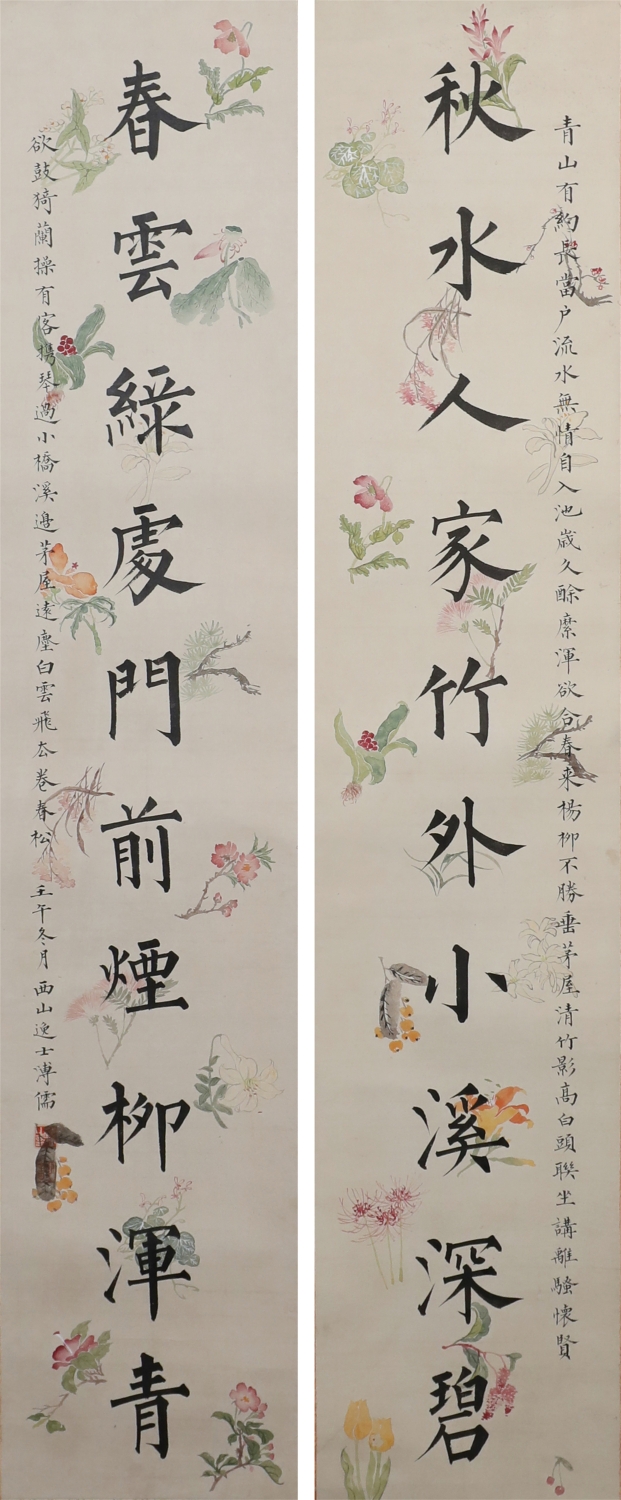 青山有約長當户流水無情自入池歲久酴縻渾欲合春来楊柳不勝垂茅屋清竹影高白頭聯坐講離騷懷賢
秋水人家竹外小溪深碧
春雲綠處門前煙柳渾青
欲鼓猗蘭操有客攜琴過小橋溪邊茅屋遠塵白雲飛去卷春松
壬午冬月西山逸士溥儒